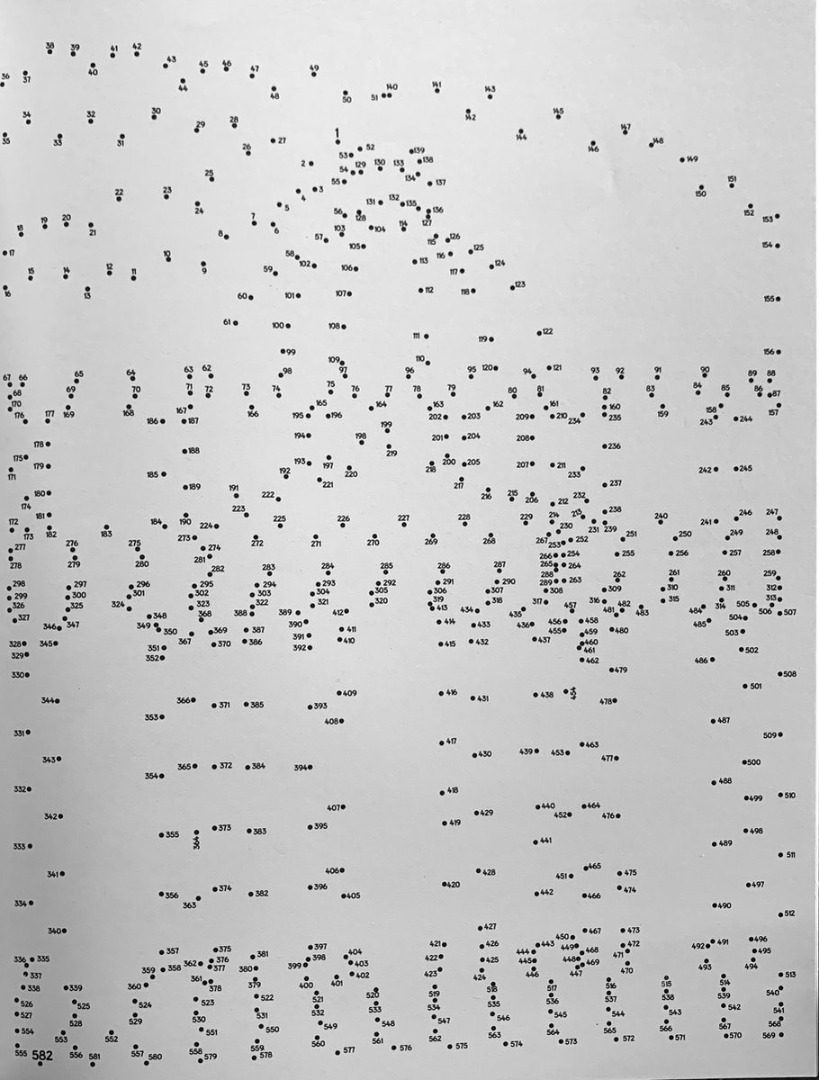 38 39 41 42
43 45 46 47 49
36 37 40 44 48 50 51 140 141 143
34 32 30 29 28 142 145
35 33 31 26 27 1 52 139 144 146 147 148
53 129 130 133 138 149
25 2 54 134 137 150 151
22 23 24 4 3 55 131 132 135 136 152 153
18 19 20 21 7 5 56 128 127
8 6 57 103 104 114 115 126 154
17 10 58 105 116 125
15 14 12 11 9 59 102 106 113 117 124
16 13 60 101 107 112 118 123 155
61 100 108 111 119 122
99 109 110 156
67 66 65 64 63 62 98 97 96 95 120 94 121 93 92 91 90 89 88
68 69 70 71 72 73 74 75 76 77 78 79 80 81 82 83 84 85 86 87
170 169 168 167 166 165 164 163 162 161 160 159 158 157
176 177 186 187 195 196 202 203 209 210 234 235 243 244
178 188 194 198 199 201 204 208 236
175 179 193 197 219 200 205 207 211
171 185 192 220 218 233 242 245
180 189 191 222 221 217 216 215 206 212 232 237
174 181 190 223 213 238 247
172 173 182 183 184 224 225 226 227 228 229 214 230 231 239 240 241 246
277 276 275 273 274 272 271 270 269 268 267 253 252 251 250 249 248
278 279 280 281 282 283 284 285 286 287 266 254 255 256 257 258
265 264 262 261 260 259
298 297 296 295 294 293 292 291 290 289 288 263
299 300 301 302 303 304 305 306 307 308 309 310 311 312 313
326 325 324 323 322 321 320 319 318 317 316 315 314
327 346 347 348 368 388 389 412 413 434 435 457 481 482 483 484 505 506 507
349 350 367 369 387 390 411 414 433 436 456 458 485 504
328 345 351 370 386 391 410 415 432 437 455 459 480 503
329 352 392 460 461 462 486 502
330 479 501 508
344 366 371 385 393 409 416 431 438 454 478
331 353 408 487 509
343 365 372 384 394 417 430 439 453 463 477 500
332 354 418 488 499 510
342 407 429 440 452 464 476
355 364 373 383 395 419 441 498
333 489 511
341 406 428 451 465 475 497
334 356 363 374 382 396 405 420 442 466 474
340 427 490 512
336 335 357 375 397 421 426 443 450 467 473 492 491 496
337 358 362 376 381 398 404 422 425 444 449 468 472 495
359 377 380 399 403 423 445 448 469 471 493 494
338 339 360 361 378 379 400 401 402 424 446 447 470 513
526 525 524 523 522 521 520 519 518 517 516 515 514 540
527 528 529 530 531 532 533 534 535 536 537 538 539 541
554 553 552 551 550 549 548 547 546 545 544 543 542
555 582 556 581 557 580 558 579 559 578 560 577 561 576 562 575 563 574 564 573 565 572 566 571 567 570 568 569